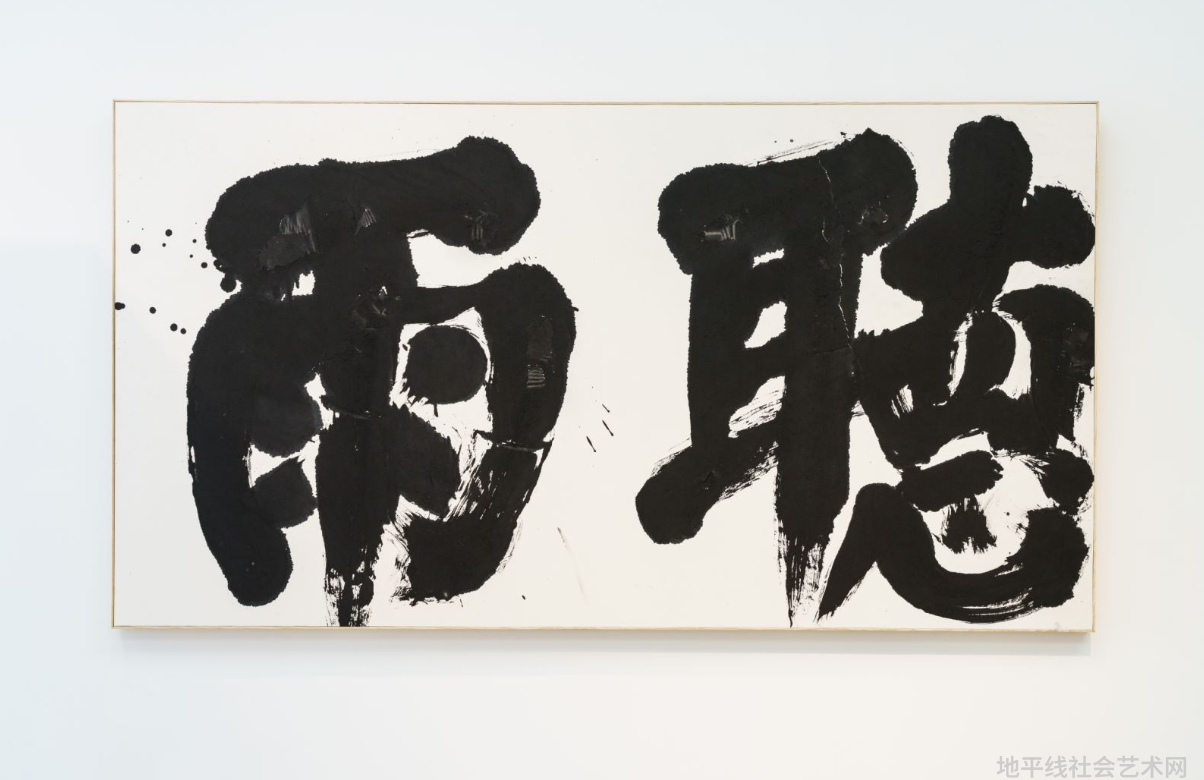 聴雨
地平线社会艺术网